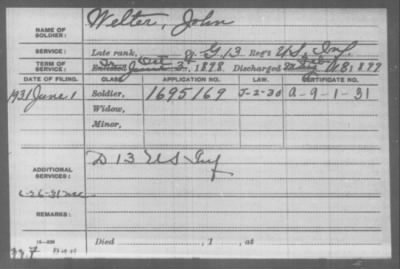 NAME OF SOLDIER: Welter, John
SERVICE: Late rank, G, 13 Reg't US Inf.
TERM OF SERVICE: Enlisted June 3, 1898 Discharged 1899
DATE OF FILING. CLASS. APPLICATION NO. LAW. CERTIFICATE NO.
1931 June 1 Soldier, 1695169 J-2-30 A-9-1-31
Widow,
Minor,
ADDITIONAL SERVICES: D 13 US Inf
6-26-31
REMARKS:
Died , 1 , at